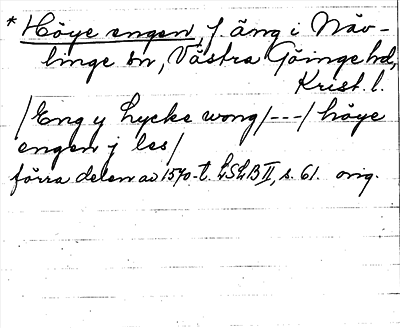 * Höye engen, f. äng i Näv-
linge sn, Västra Göinge hd,
Krist. l.
/Eng y Lycke wong/---/höye
engen j les/
förra delen av 1570-t. LSLB II, s. 61. orig.